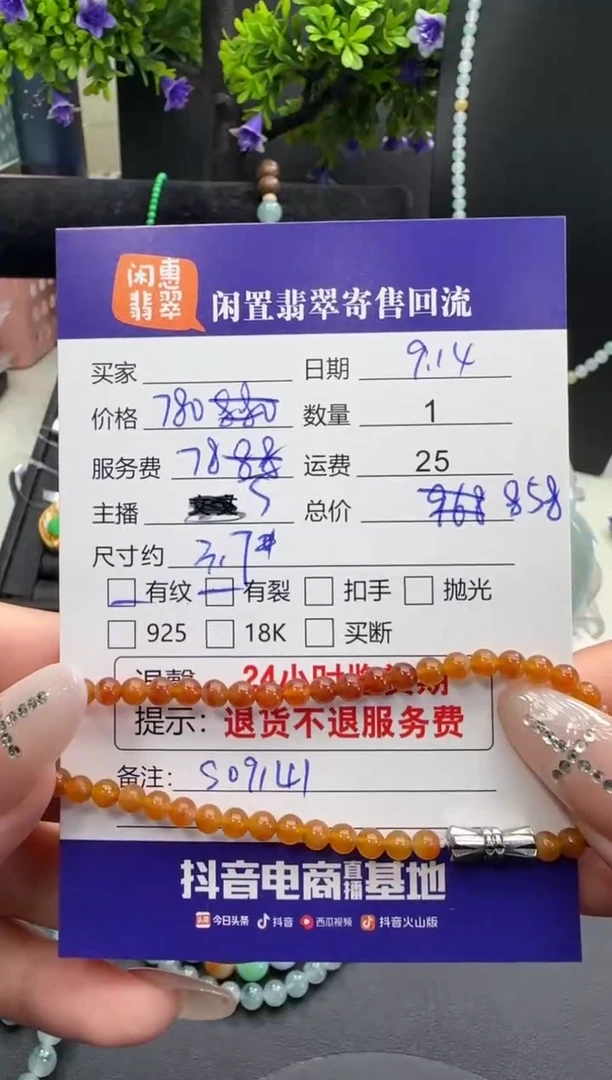 闲惠
翡翠
闲置翡翠寄售回流
买家 日期 9.14
价格 780 880 数量 1
服务费 78 88 运费 25
主播 S 总价 968 858
尺寸约 3.7#
有纹 有裂 扣手 抛光
925 18K 买断
24小时
提示：退货不退服务费
备注： S09141
抖音电商直播基地
头条 今日头条 抖音 西瓜视频 抖音火山版